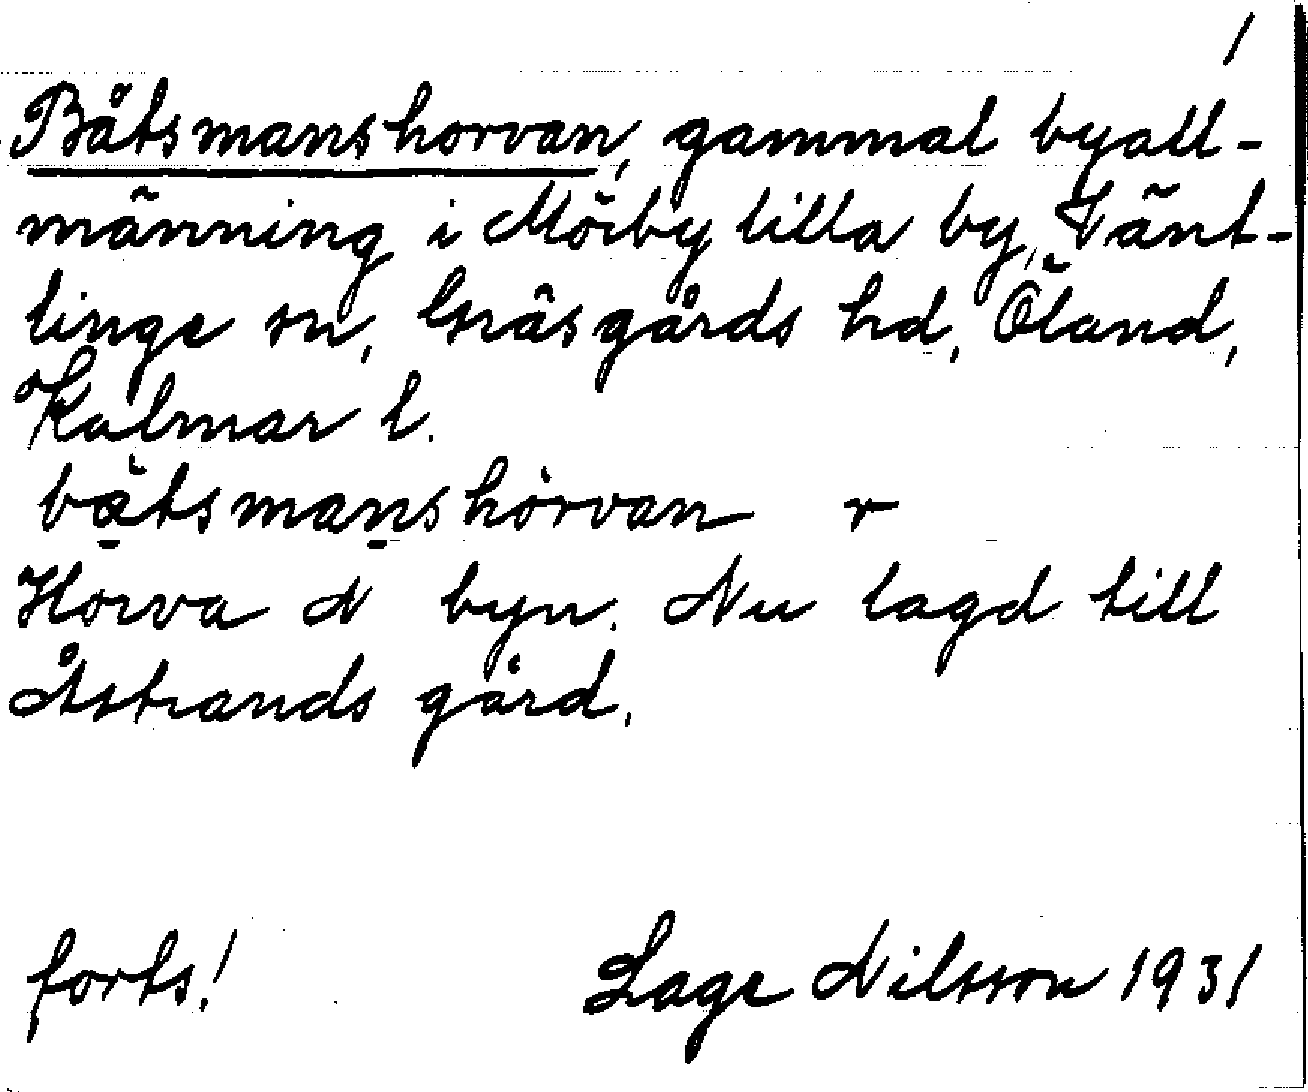 1
Båtsmanshorvan, gammal byall-
männing i Mörby lilla by, Vänt-
linge sn, Gräsgårds hd, Öland,
Kalmar l.
båtsmanshòrvan r
Horva N byn. Nu lagd till
Åstrands gård.
forts! Lage Nilsson 1931